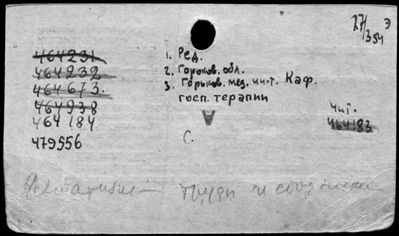 27/354 Э
464231
464232
464673.
464938
464184
479556
1. Ред.
2. Горьков. обл.
3. Горьков. мед. ин-т. Каф.
госп. терапии
Чит.
464183
С.
труды и